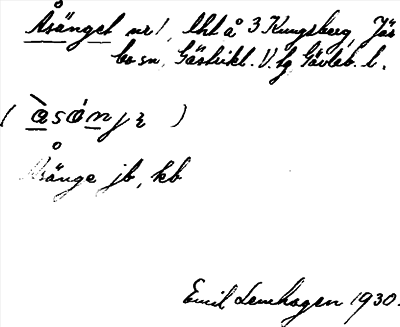 Åsänget nr 1, lht å 3 Kungsberg, Jär
bo sn, Gästrikl. V. hg, Gävleb. l.
( àsánjɛ )
Åsänge jb, kb
Emil Lenhagen 1930.